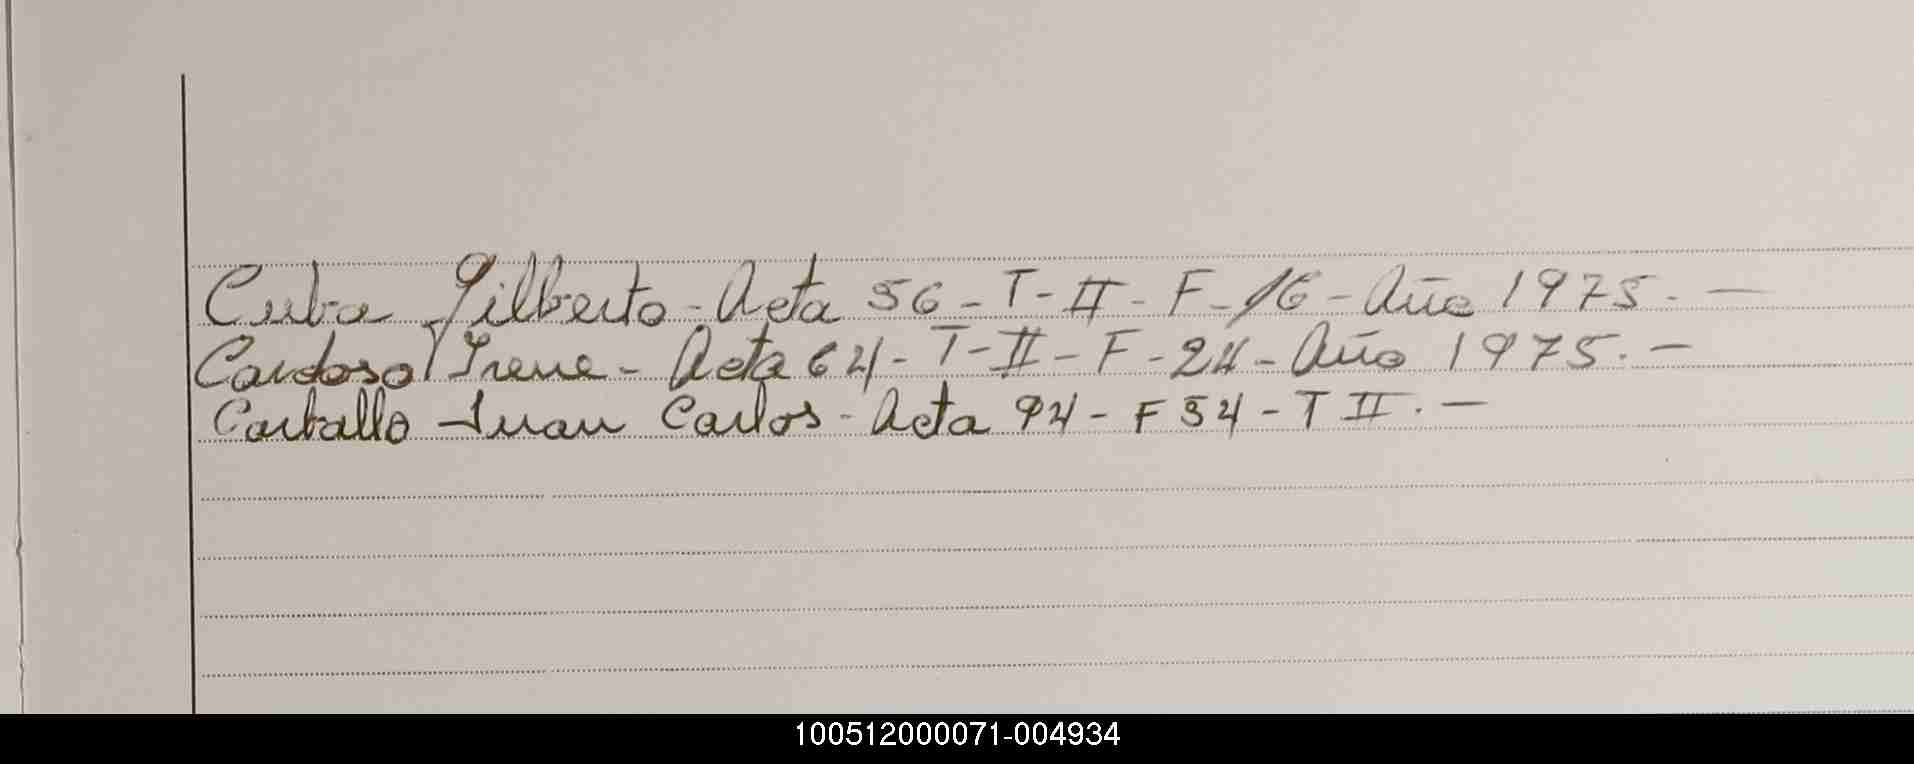 Cuba Gilberto - Acta 56 - T - II - F - 16 - Año 1975. —
Cardoso Irene - Acta 64 - T - II - F - 24 - Año 1975. —
Carballo Juan Carlos - Acta 94 - F 54 - T II. —
100512000071-004934